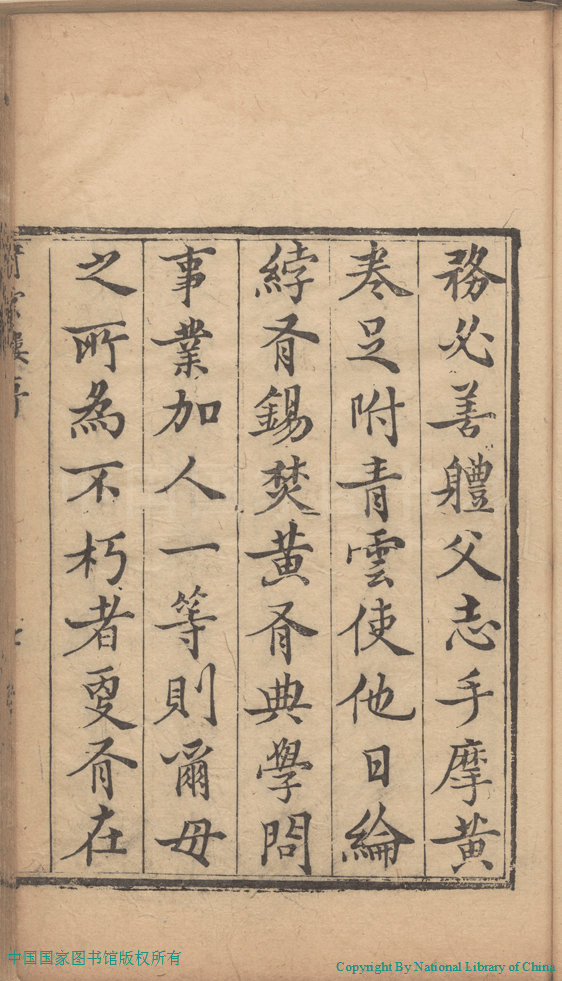 務必善體父志手摩黄
卷足附青雲使他日綸
綍有錫焚黄有典學問
事業加人一等則爾母
之所為不朽者更有在
中国国家图书馆版权所有
Copyright By National Library of China